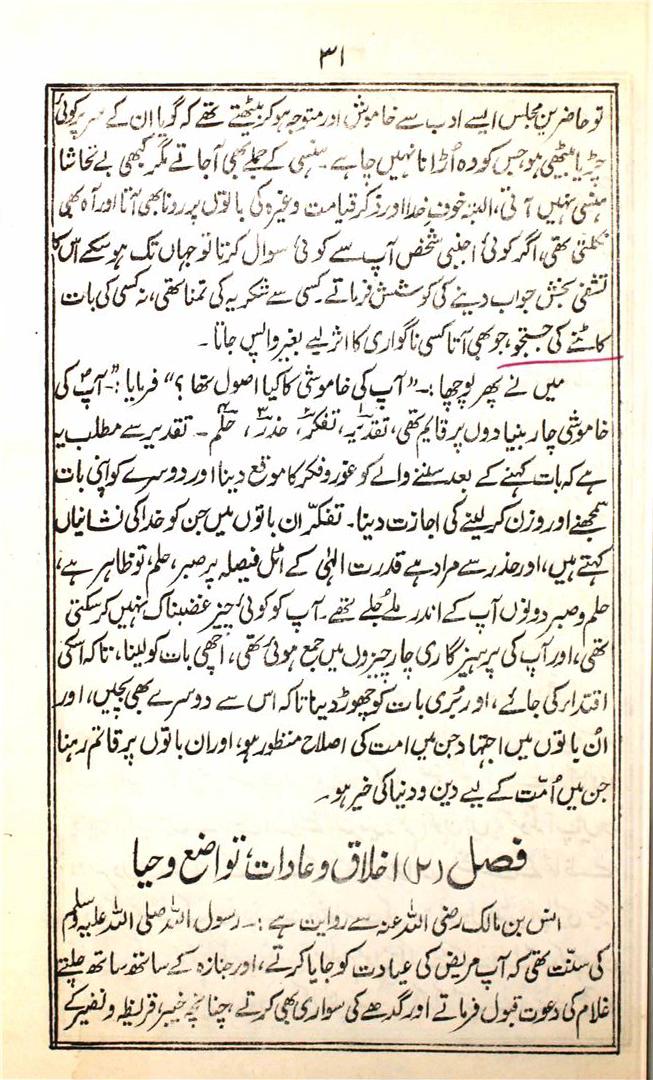 ۳۱
تو حاضرین مجلس ایسے ادب سے خاموش اور متوجہ ہوکر بیٹھتے تھے کہ گویا ان کے سر پر کوئی
چڑیا بیٹھی ہو جس کو وہ اُڑانا نہیں چاہے۔ ہنسی کے جملے بھی آجاتے مگر کبھی بے تحاشا
ہنسی نہیں آتی، البتہ خوفِ خدا اور ذکر قیامت وغیرہ کی باتوں پر رونا بھی آتا اور آہ بھی
نکلتی تھی، اگر کوئی اجنبی شخص آپ سے کوئی سوال کرتا تو جہاں تک ہوسکے اس کا
تشفی بخش جواب دینے کی کوشش فرماتے۔ کسی سے شکریہ کی تمنا تھی، نہ کسی کی بات
کاٹنے کی جستجو، جو بھی آتا کسی ناگواری کا اثر لیے بغیر واپس جاتا۔
میں نے پھر پوچھا :۔ "آپ کی خاموشی کا کیا اصول تھا؟" فرمایا :۔ "آپؐ کی
خاموشی چار بنیادوں پر قایم تھی، تقدیر، تفکر، حذر، حلم۔ تقدیر سے مطلب یہ
ہے کہ بات کہنے کے بعد سننے والے کو غور و فکر کا موقع دینا اور دوسرے کو اپنی بات
سمجھنے اور وزن کر لینے کی اجازت دینا۔ تفکّر ان باتوں میں جن کو خدا کی نشانیاں
کہتے ہیں، اور حذر سے مراد ہے قدرت الٰہی کے اٹل فیصلہ پر صبر، حلم، تو ظاہر ہے،
حلم و صبر دونوں آپ کے اندر ملے جُلے تھے۔ آپ کو کوئی چیز غضبناک نہیں کرسکتی
تھی، اور آپ کی پرہیزگاری چار چیزوں میں جمع ہوئی تھی، اچھی بات کو لینا، تاکہ اسکی
اقتدار کی جائے، اور بُری بات کو چھوڑ دینا تاکہ اس سے دوسرے بھی بچیں، اور
اُن باتوں میں اجتہاد جن میں امت کی اصلاح منظور ہو، اور ان باتوں پر قائم رہنا
جن میں اُمّت کے لیے دین و دنیا کی خیر ہو۔
فصل (۲) اخلاق و عادات، تواضع و حیا
انس بن مالک رضی اللہ عنہ سے روایت ہے :۔ رسول اللہ صلی اللہ علیہ وسلم
کی سنّت تھی کہ آپ مریض کی عیادت کو جایا کرتے، اور جنازہ کے ساتھ ساتھ چلتے
غلام کی دعوت قبول فرماتے اور گدھے کی سواری بھی کرتے، چنانچہ خیبر، قریظہ و نضیر کے